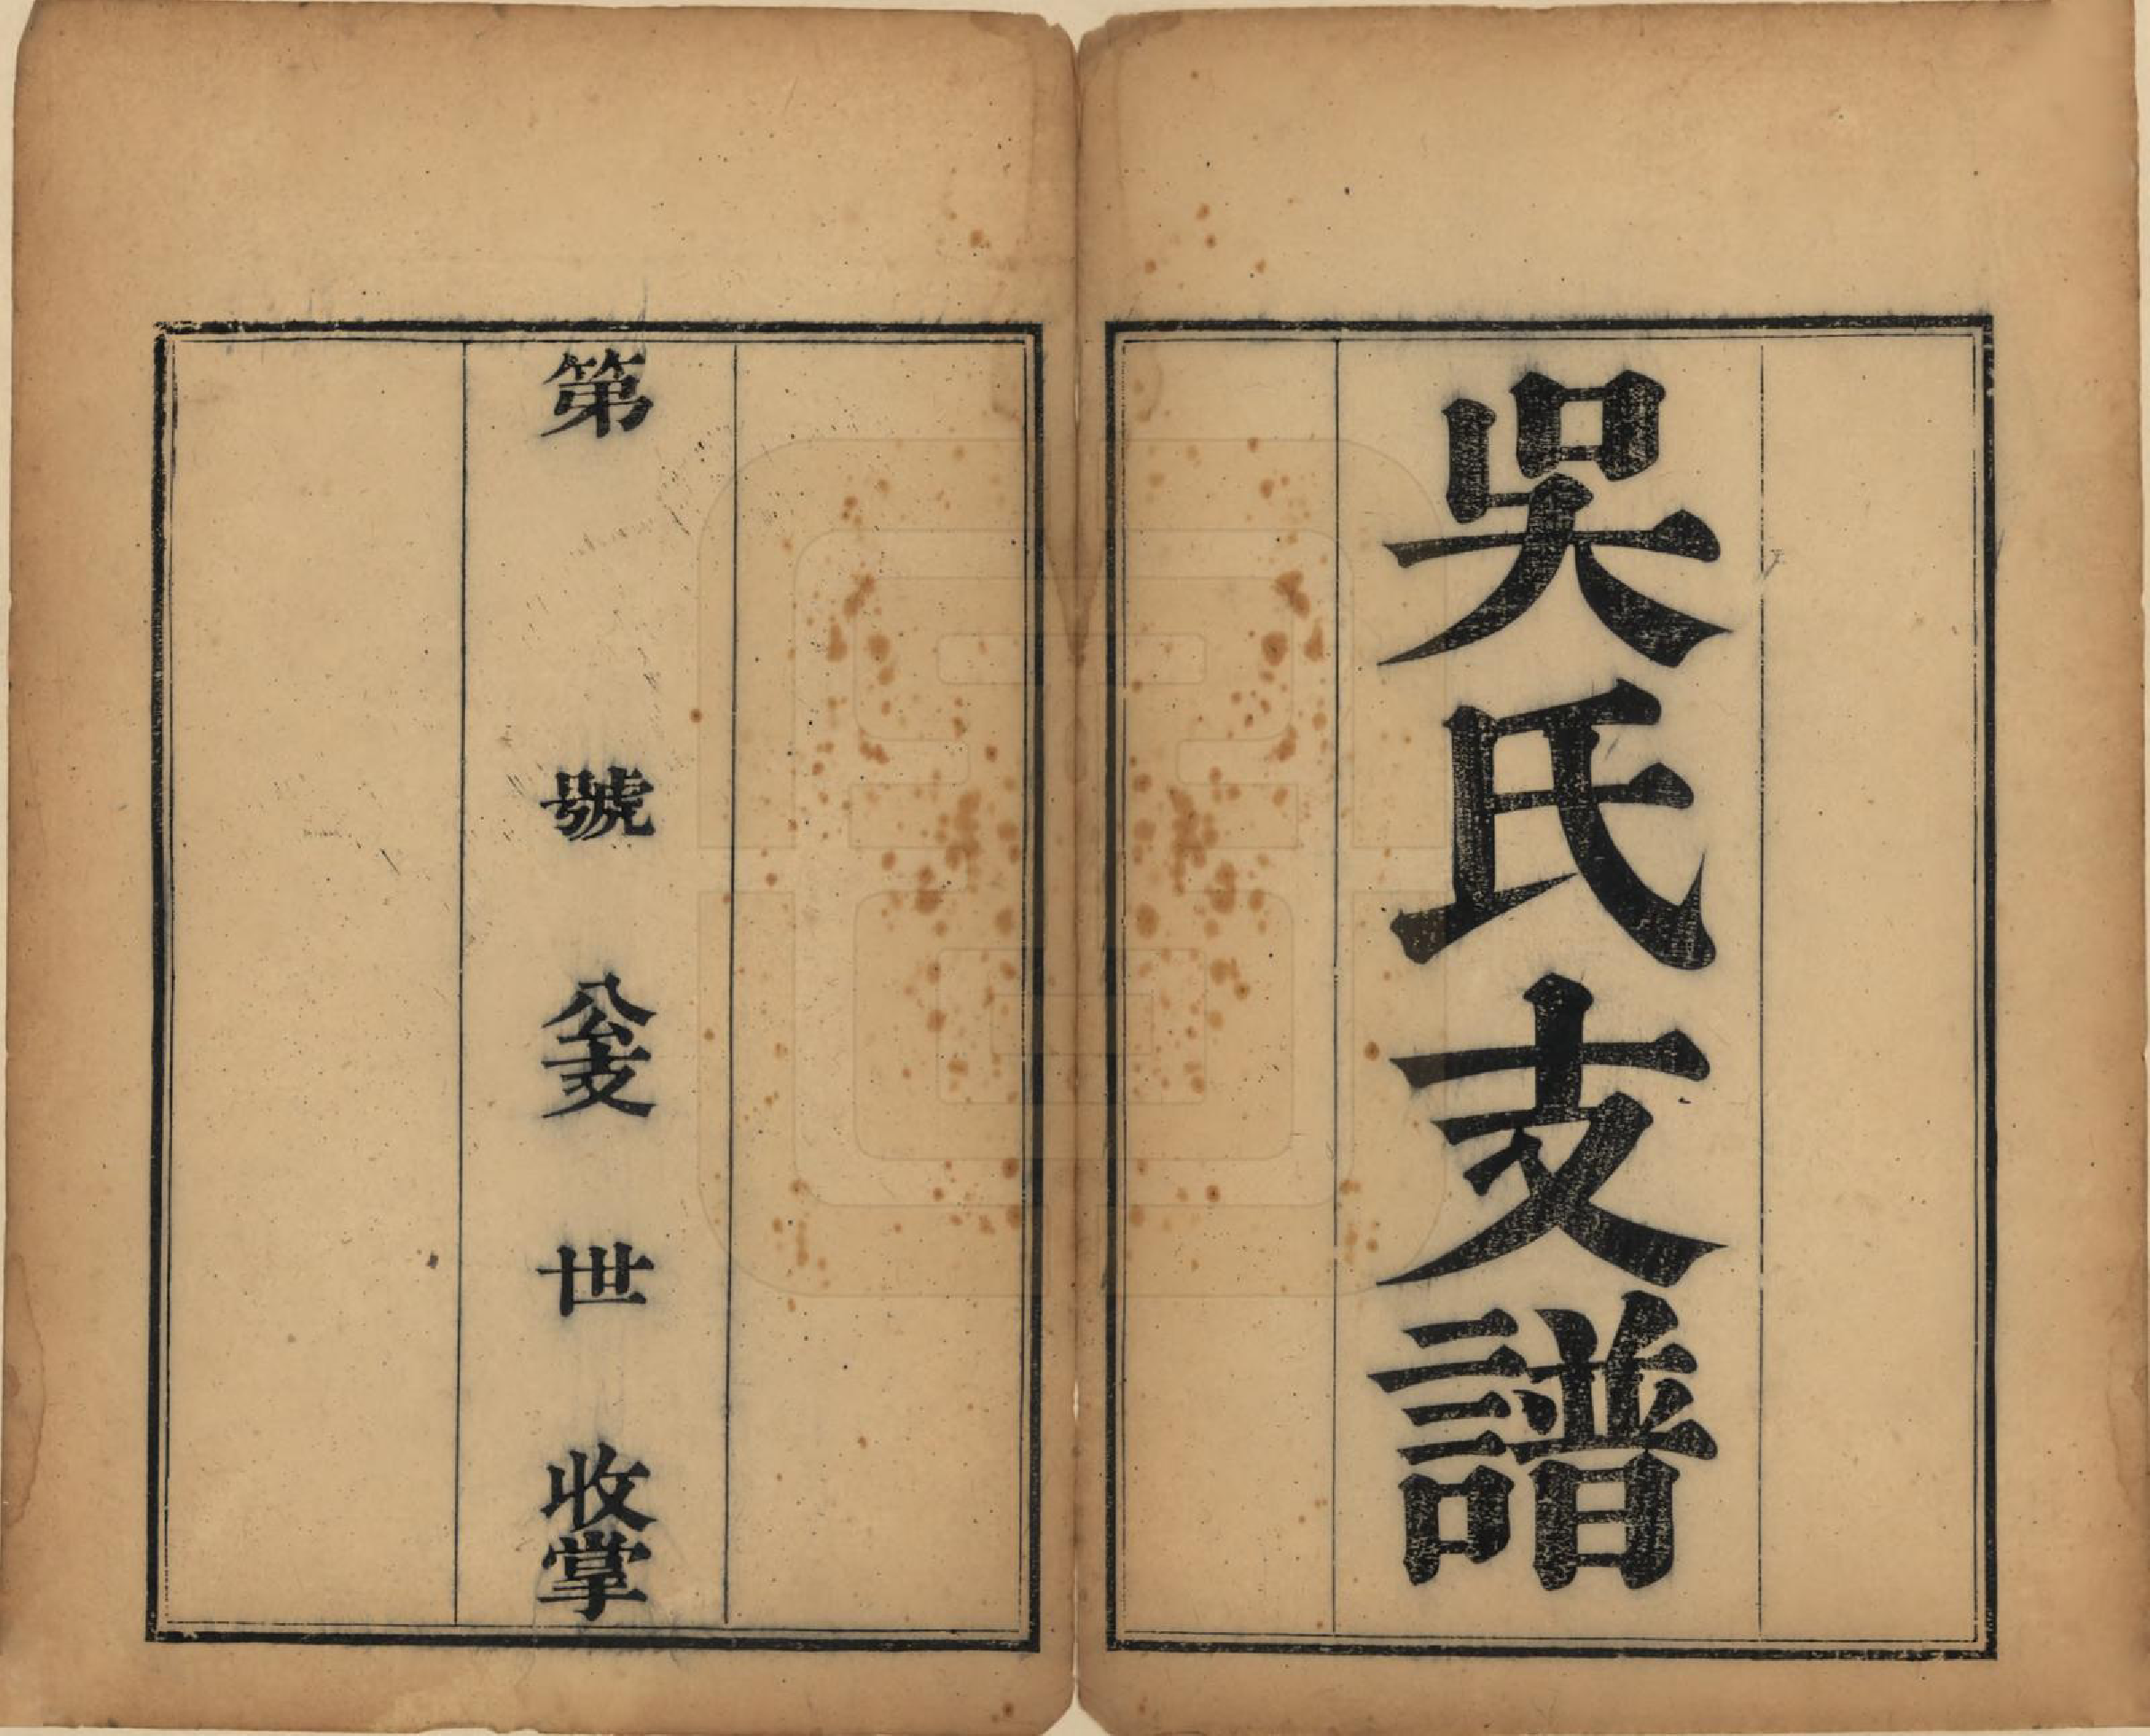 吳氏支譜
第　號　公支　世　收掌